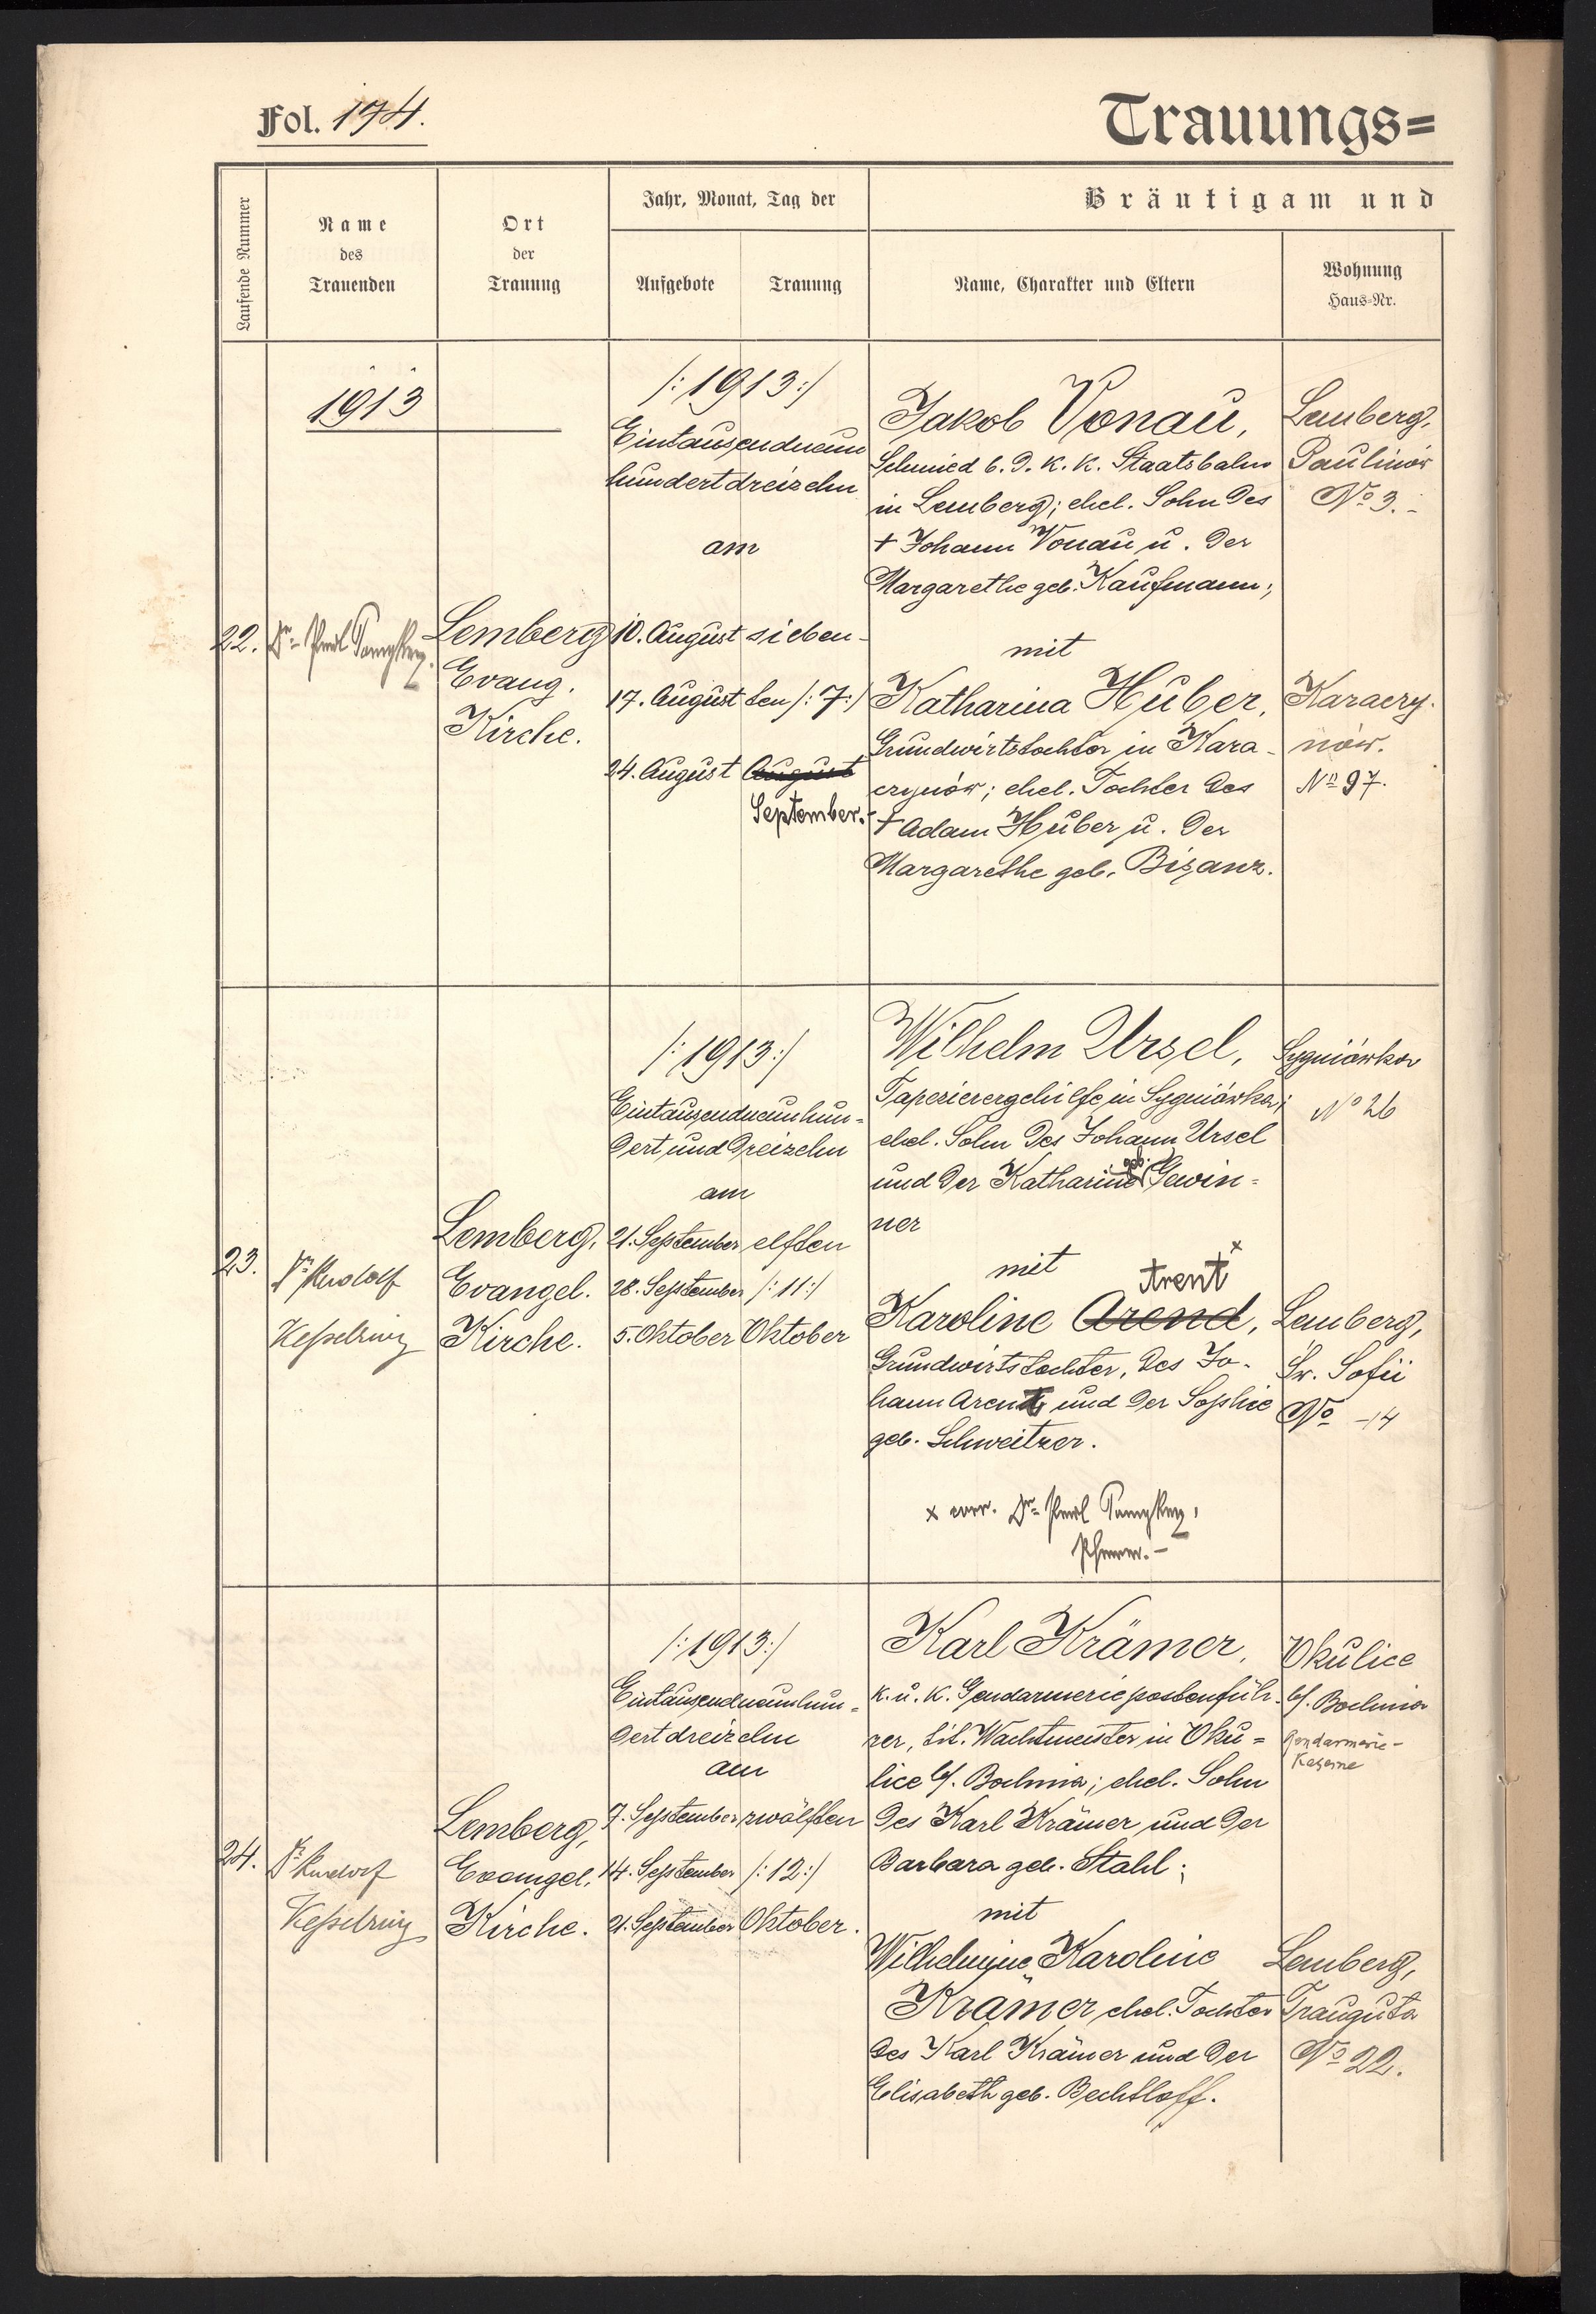 Fol. 174.
Trauungs=
Laufende Nummer
Name
des
Trauenden
Ort
der
Trauung
Jahr, Monat, Tag der
Aufgebote
Trauung
Bräutigam und
Name, Charakter und Eltern
Wohnung
Haus-Nr.
1913
22.
Dr.
Lemberg
Evang.
Kirche.
/:1913:/
Eintausendneun
hundertdreizehn
am
10. August sieben-
17. August ten /:7:/
24. August August
September.
Jakob Vonau,
Schmied b. d. k. k. Staatsbahn
in Lemberg; ehel. Sohn des
+ Johann Vonau u. der
Margarethe geb. Kaufmann;
mit
Katharina Huber,
Grundwirtstochter in Kara-
czynów; ehel. Tochter des
+ Adam Huber u. der
Margarethe geb. Bisanz.
Lemberg,
Paulinów
No 3.-
Karaczy-
nów.
No 97.
23.
Dr Rudolf
Kesselring
Lemberg,
Evangel.
Kirche.
/:1913:/
Eintausendneunhun-
dert und dreizehn
am
21. September elften
28. September /:11:/
5. Oktober Oktober
Wilhelm Ursel,
Tapezierergehilfe in Sygniówka;
ehel. Sohn des Johann Ursel
und der Katharina geb. Gewin-
ner
mit
Arent x
Karoline Arend,
Grundwirtstochter, des Jo-
hann Arent und der Sophie
geb. Schweitzer.
x corr. Dr.
Pfarrer.-
Sygniówka
No 26
Lemberg,
Św. Sofii
No -14
24.
Dr Rudolf
Kesselring
Lemberg,
Evangel.
Kirche.
/:1913:/
Eintausendneunhun-
dertdreizehn
am
7. September zwölften
14. September /:12:/
21. September Oktober.
Karl Krämer,
k. u. k. Gendarmeriepostenfüh-
rer, tit. Wachtmeister in Oku-
lice b/. Bochnia; ehel. Sohn
des Karl Krämer und der
Barbara geb. Stahl;
mit
Wilhelmine Karoline
Krämer ehel. Tochter
des Karl Krämer und der
Elisabeth geb. Bechtloff.
Okulice
b/. Bochnia
Gendarmerie-
Kaserne
Lemberg,
Trauguta
No 22.